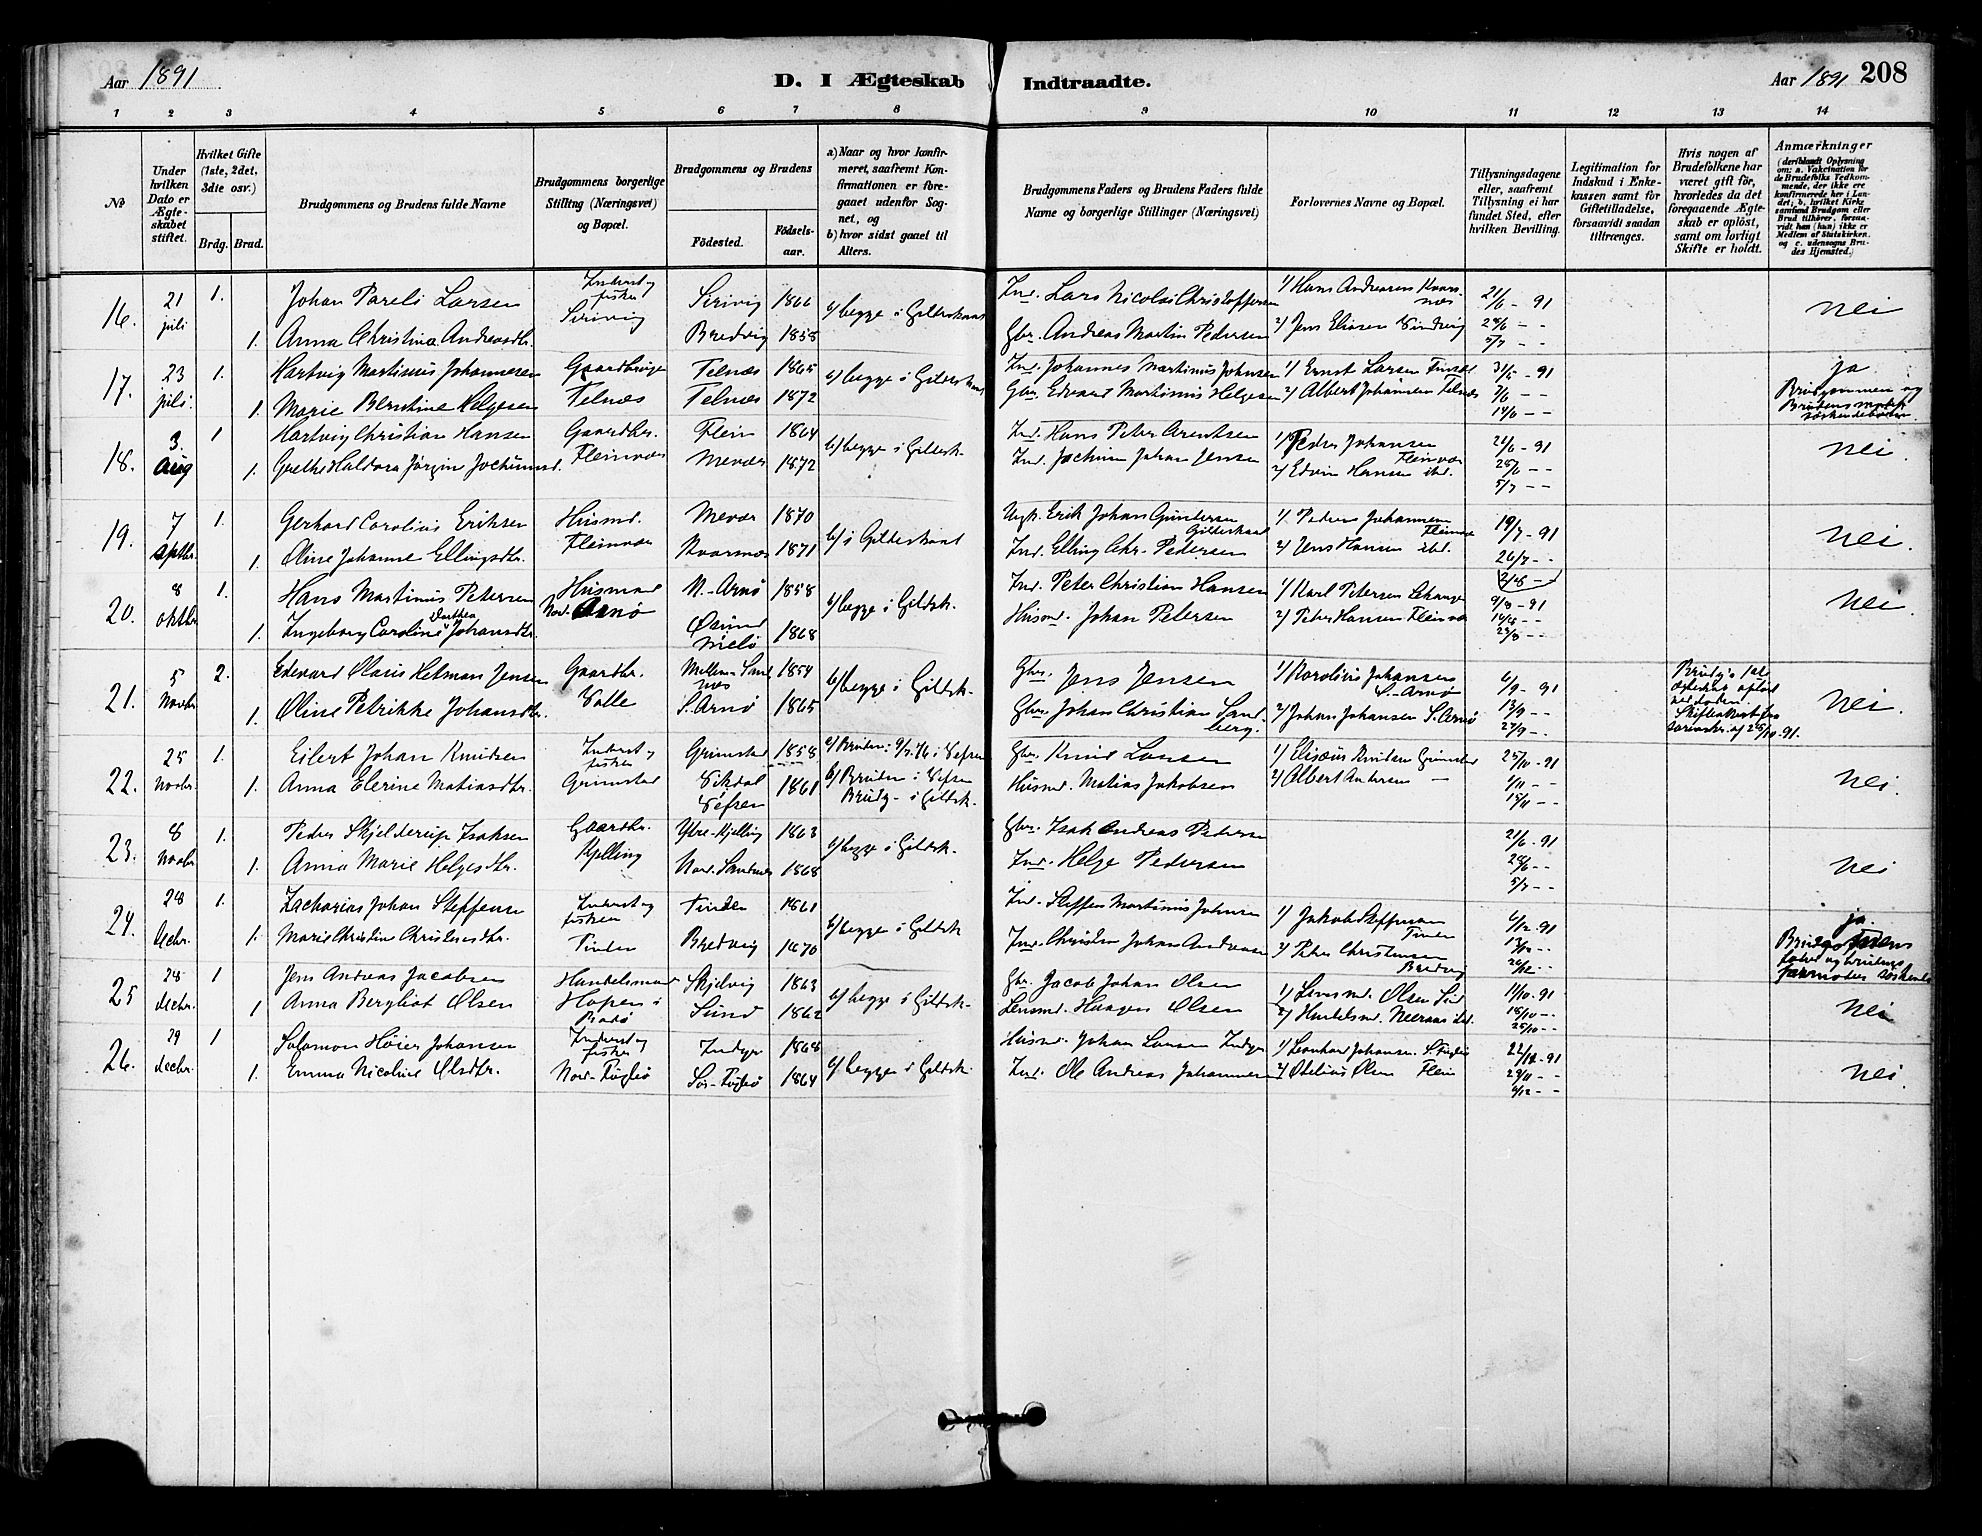 Aar 1891
D. I Ægteskab Indtraadte.
Aar 1891 208
1 2 3 4 5 6 7 8 9 10 11 12 13 14
No
Under hvilken Dato er Ægteskabet stiftet.
Hvilket Gifte (1ste, 2det, 3die osv.)
Brdg. Brud.
Brudgommens og Brudens fulde Navne
Brudgommens borgerlige Stilling (Næringsvei) og Bopæl.
Brudgommens og Brudens
Födested. Födselsaar.
a) Naar og hvor konfirmeret, saafremt Konfirmationen er foregaaet udenfor Sognet, og
b) hvor sidst gaaet til Alters.
Brudgommens Faders og Brudens Faders fulde Navne og borgerlige Stillinger (Næringsvei)
Forlovernes Navne og Bopæl.
Tillysningsdagene eller, saafremt Tillysning ei har fundet Sted, efter hvilken Bevilling.
Legitimation for Indskud i Enkekassen samt för Giftetilladelse, forsaavidt saadan tiltrænges.
Hvis nogen af Brudefolkene har været gift för, hvorledes da det foregaaende Ægteskab er oplöst, samt om lovligt Skifte er holdt.
Anmærkninger
(deriblandt Oplysning om: a. Vaccination för de Brudefolks Vedkommende, der ikke ere konfirmerede her i Landet; b. hvilket Kirkesamfund Brudgom eller Brud tilhörer, forsaavidt han (hun) ikke er Medlem af Statskirken, og c. udensogns Brudes Hjemsted.)
16. 21 juli 1. Johan Pareli Larsen Inderst og fisker Sirivig 1866 b/ begge i Gildeskaal Ind. Lars Nicolai Christoffersen 1/ Hans Andreasen Kvarsnæs 21/6 - 91 nei
1. Anna Christina Andreasdtr. Sirivig Bredvig 1855 Gbr. Andreas Martin Pedersen 2/ Jens Eliasen 28/6 - -
5/7 - -
17. 23 juli. 1. Hartvig Martinus Johannesen Gaardbruger Felnæs 1865 b/ begge i Gildeskaal Ind. Johannes Martinus Johnsen 1/ Ernst Larsen 31/5 - 91 ja
1. Marie Berntine Helgesen Felnæs Felnæs 1872 Gbr. Edvard Martinus Helgesen 2/ Albert Johansen Felnæs 7/6 - - Brudgommen og
14/6 - - Brudens
18. 3 Aug 1 Hartvig Christian Hansen Gaardbr. Flein 1864 b/ begge i Gildesk. Ind. Hans Peter Arentsen 1/ Peder Johansen Fleinvær 21/6 - 91 nei.
1. Grethe Haldora Jörgin Jochumsd. Fleinvær Mevær 1872 Ind. Jochim Johan Jensen 2/ Edvin Hansen ibd. 28/6 - -
5/7 - -
19. 7 septbr. 1. Gerhard Carolius Eriksen Husmd. Mevær 1870 b/ i Gildeskaal Erik Johan Guntersen Gildeskaal 1/ Peder Johansen Fleinvær 19/7 - 91 nei.
1. Oline Johanne Ellingsdtr. Fleinvær Kvarsnæs 1871 Ind. Elling Chr. Pedersen 2/ Jens Hansen ibd. 26/7 - -
20. 8 oktbr 1. Hans Martinus Petersen Husmand N.-Arnö 1858 b/ begge i Gildsk. Ind. Peter Christian Hansen 1/ Karl Petersen 9/8 - 91 nei.
1. Ingeborg Caroline Dorthea Johansdtr. Nord Arnö 1868 Husmd. Johan Petersen 2/ Peter Hansen Fleinvær 16/8 - -
23/8 - -
21. 5 Novbr 2. Edevard Claus Hetman Jensen Gaardbr. Mellem-Sandnæs 1854 b/ begge i Gildsk. Gbr. Jens Jensen 1/ Karolius Johansen S.-Arnö 6/9 - 91 Brudg's 1ste ægteskab oplöst ved döden. nei.
1. Oline Petrikke Johansdtr. Valle S. Arnö 1865 Gbr. Johan Christian Sandberg. 2/ Johan Johansen S. Arnö 13/9 - - af 25/10-91.
27/9 - -
22. 25 Novbr 1. Eilert Johan Knudsen Inderst og fisker Grimstad 1858 a/ Bruden: 9/7.76 i Vefsen Gbr. Knud Larsen 1/ Elisæus Knudsen Grimstad 25/10 - 91 nei.
1. Anna Elerine Matiasdtr. Grimstad Vikdal Vefsen 1861 b/ Bruden i Vefsen Brudg. - i Gildsk. Husmd. Matias Jakobsen 2/ Albert Andersen — 1/11 - -
15/11 - -
23. 8 Novbr 1. Peder Skjelderup Isaksen Gaardbr. Ytre-Kjelling 1863 b/ begge i Gildsk. Gbr. Isak Andreas Petersen 21/6 - 91 nei
1. Anna Marie Helgesdtr. Kjelling Nord. Sandnæs 1868 Ind. Helge Pedersen 28/6 - -
5/7 - -
24. 28 Decbr. 1. Zacharias Johan Steffensen Inderst og fisker Tinden 1861 b/ begge i Gildsk Ind. Steffen Martinus Johnsen 1/ Jakob Steffensen Tinden 6/12 - 91 ja
1. Marie Christine Christensdtr. Tinden Bredvig 1870 Ind. Christen Johan Andreasen 2/ Peter Christensen Bredvig 13/12 - -
20/12 - -
25 28 decbr. 1 Jens Andreas Jacobsen Handelsmand Skjelvig 1863 b/ begge i Gildsk. Gbr. Jacob Johan Olsen 1/ Lensmd. Olsen Sund 11/10 - 91 nei
1 Anna Bergliot Olsen Hopen i Bodö Sund 1862 Lensmd. Haagen Olsen 2/ Handelsmd. ibd. 18/10 - -
25/10 - -
26. 29 decbr. 1 Salamon Höier Johansen Inderst og fisker Indyr 1868 b/ begge i Gildsk. Husmd. Johan Larsen Indyr 1/ Leonhard Johansen S. Fuglö 22/11 - 91 nei.
1. Emma Nicoline Olsdtr. Nord-Fuglö Sör-Fuglö 1864 Ind. Ole Andreas Johannesen 2/ Otelius Olsen Flein 29/11 - -
6/12 - -